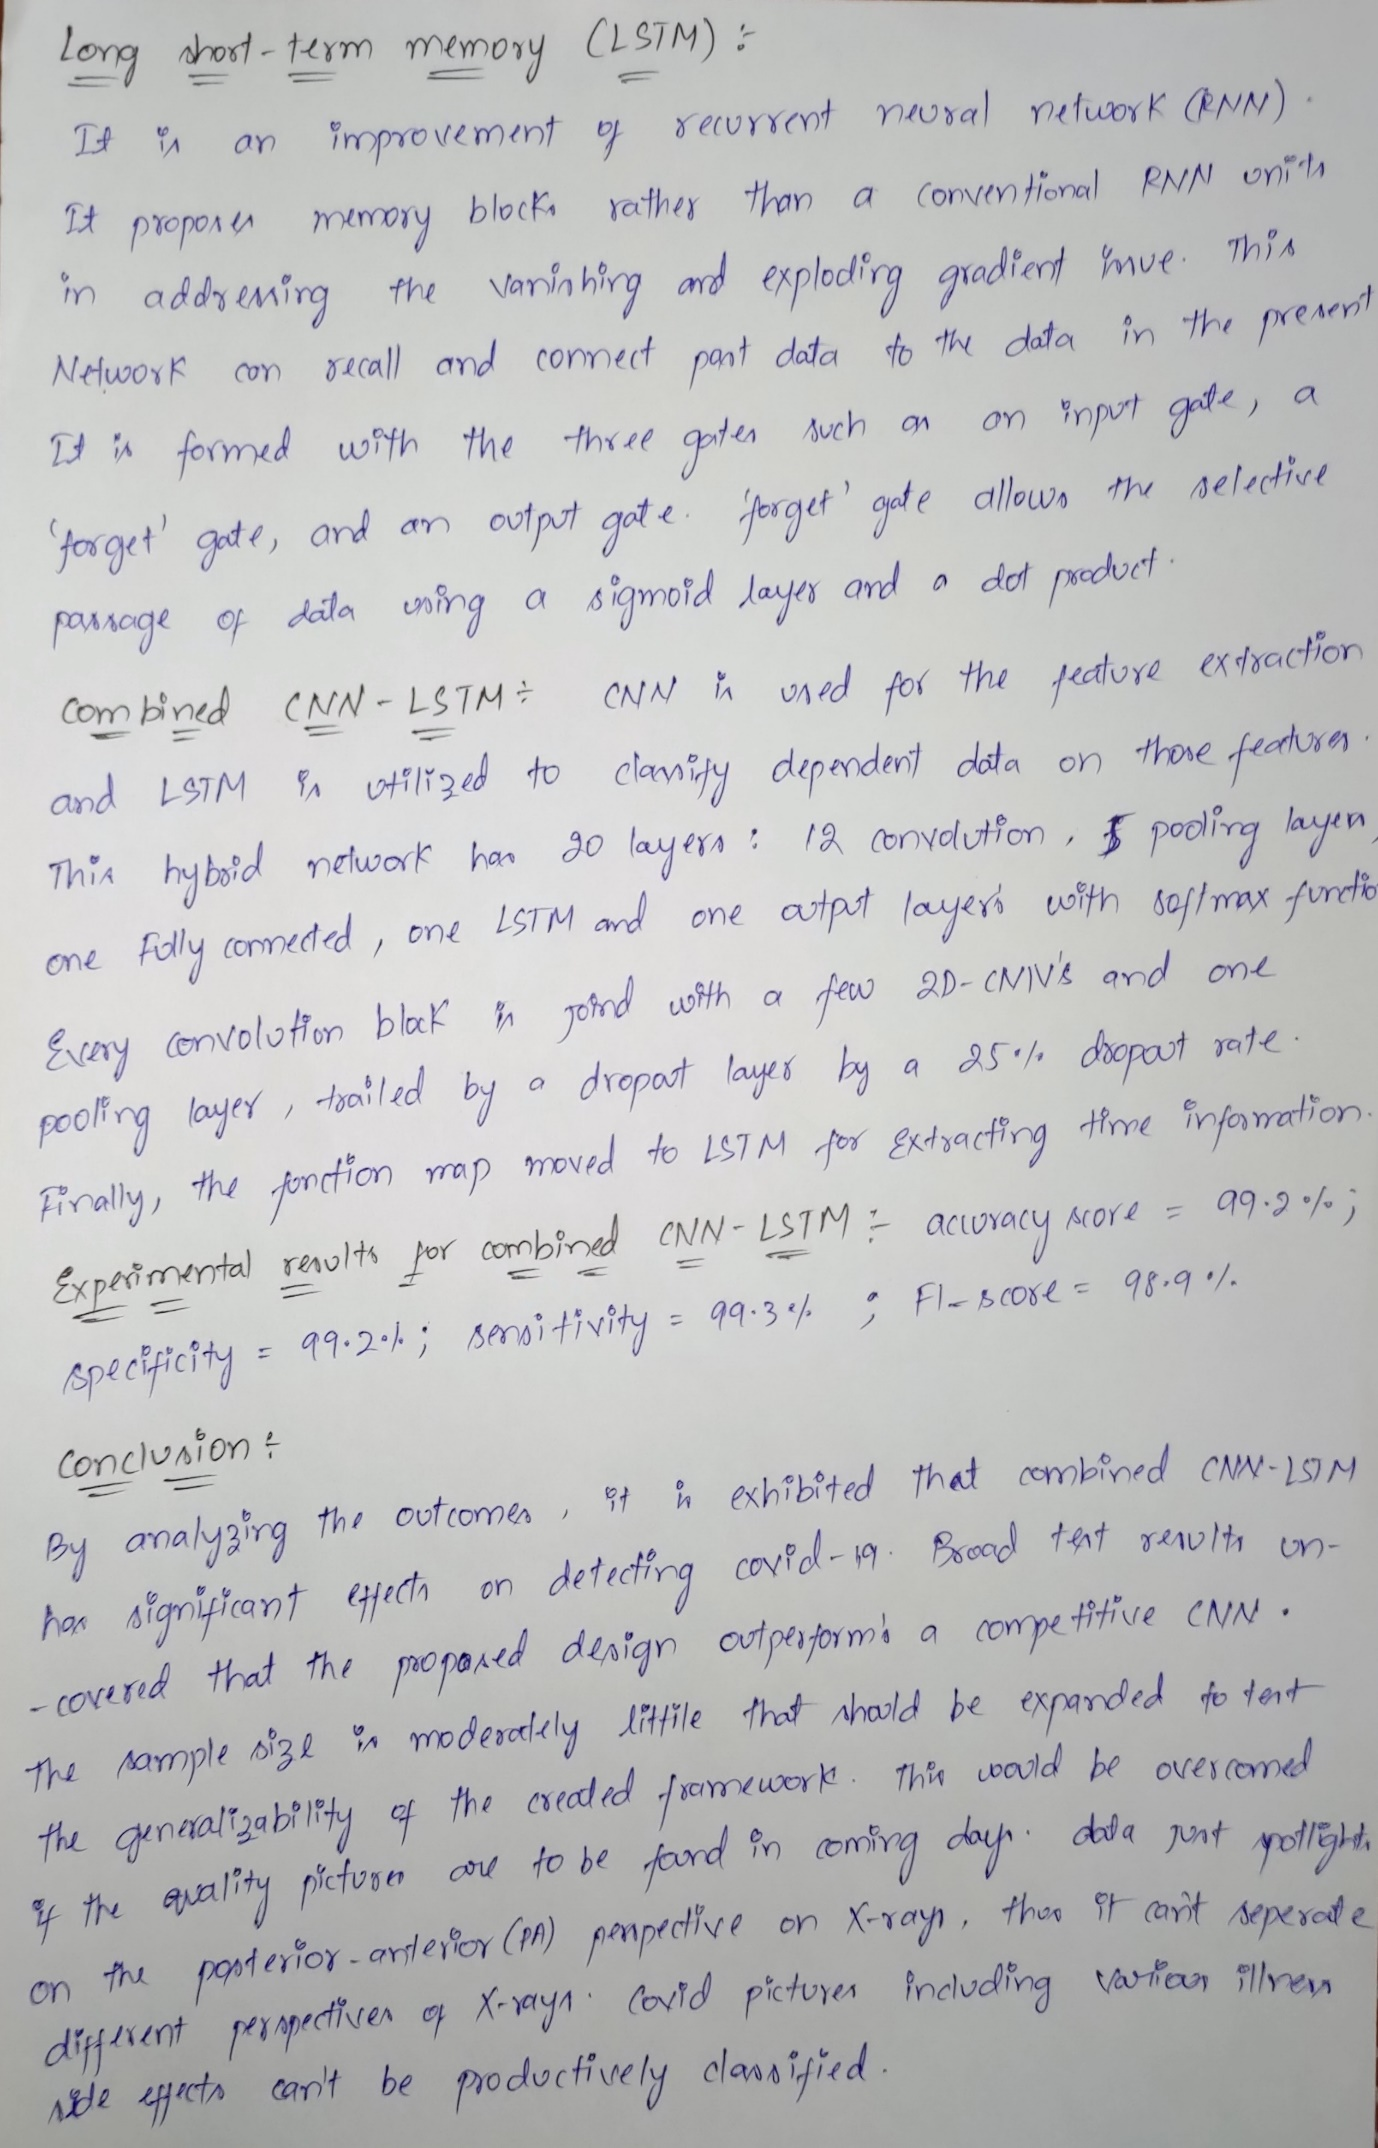 Long short-term memory (LSTM) :
It is an improvement of recurrent neural network (RNN).
It proposes memory blocks rather than a conventional RNN units
in addressing the vanishing and exploding gradient issue. This
Network can recall and connect past data to the data in the present
It is formed with the three gates such as an input gate, a
'forget' gate, and an output gate. 'forget' gate allows the selective
passage of data using a sigmoid layer and a dot product.
Combined CNN-LSTM : CNN is used for the feature extraction
and LSTM is utilized to classify dependent data on those features.
This hybrid network has 20 layers : 12 convolution, 5 pooling layers,
one Fully connected, one LSTM and one output layers with softmax functio
Every convolution block is joind with a few 2D-CNN's and one
pooling layer, trailed by a dropout layer by a 25% dropout rate.
Finally, the fonction map moved to LSTM for Extracting time information.
Experimental results for combined CNN-LSTM : accuracy score = 99.2%;
specificity = 99.2%; sensitivity = 99.3% ; F1-score = 98.9%.
Conclusion :
By analyzing the outcomes, it is exhibited that combined CNN-LSTM
has significant effects on detecting covid-19. Broad test results un-
-covered that the proposed design outperform's a competitive CNN.
The sample size is moderately littile that should be expanded to test
the generalizability of the created framework. This would be overcomed
if the quality pictures are to be found in coming days. data just spotlights
on the posterior-anterior (PA) perspective on X-rays, thus it can't seperate
different perspectives of X-rays. Covid pictures including various illness
side effects can't be productively classified.